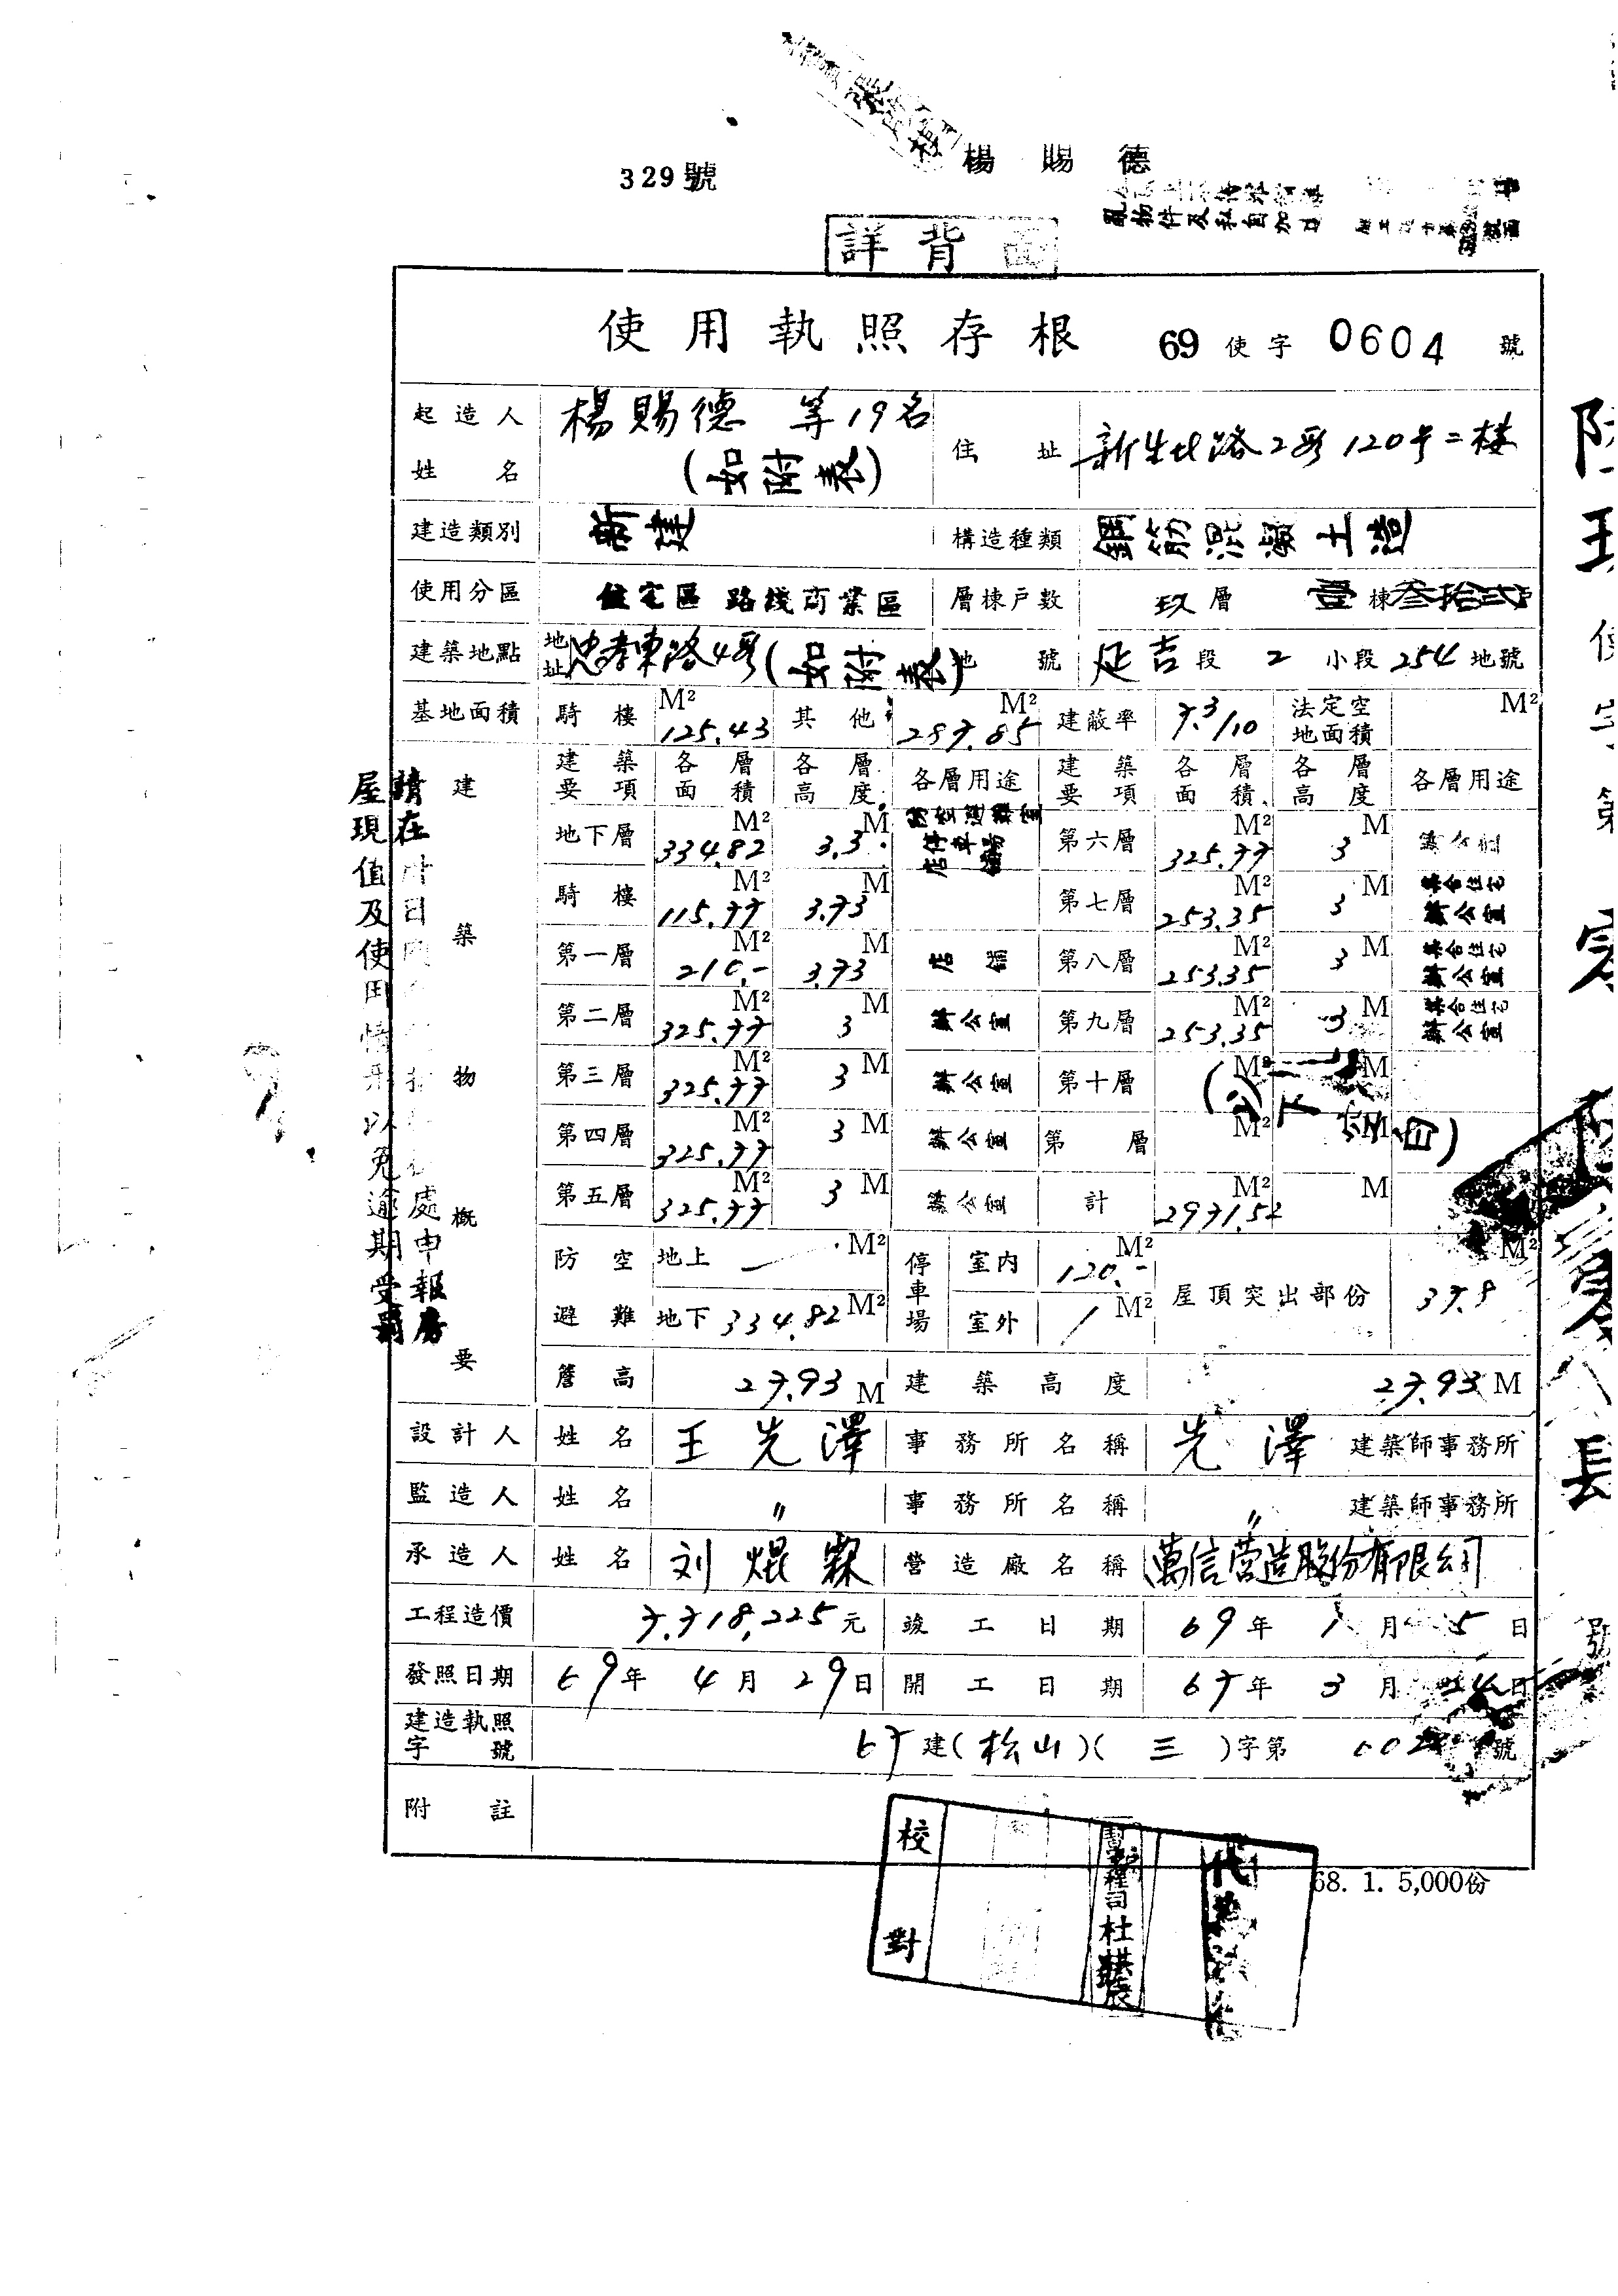 329號
楊賜德
詳背面
使用執照存根 69使字0604號
起造人姓名 楊賜德 等19名 (如附表) 住址 新生北路2段120号二楼
建造類別 新建 構造種類 鋼筋混凝土造
使用分區 住宅區 路線商業區 層棟戶數 玖層 壹棟叁拾貳戶
建築地點 地址 忠孝東路4段(如附表) 地號 延吉段 2 小段 254 地號
基地面積 騎樓 M² 125.43 其他 M² 287.85 建蔽率 7.3/10 法定空地面積 M²
建築物概要
建築要項 各層面積 各層高度 各層用途 建築要項 各層面積 各層高度 各層用途
地下層 M² 334.82 M 3.3 防空避難室 停車場 店舖 第六層 M² 325.77 M 3 辦公室
騎樓 M² 115.77 M 3.73 第七層 M² 253.35 M 3 集合住宅 辦公室
第一層 M² 210.- M 3.73 店舖 第八層 M² 253.35 M 3 集合住宅 辦公室
第二層 M² 325.77 M 3 辦公室 第九層 M² 253.35 M 3 集合住宅 辦公室
第三層 M² 325.77 M 3 辦公室 第十層 M² M
(以下空白)
第四層 M² 325.77 M 3 辦公室 第 層 M² M
第五層 M² 325.77 M 3 辦公室 計 M² 2971.52 M
防空避難 地上 — M² 停車場 室內 M² 120.- 屋頂突出部份 37.8 M²
地下 334.82 M² 室外 / M²
簷高 27.93 M 建築高度 27.93 M
設計人 姓名 王光澤 事務所名稱 光澤 建築師事務所
監造人 姓名 〃 事務所名稱 〃 建築師事務所
承造人 姓名 刘焜霖 營造廠名稱 萬信营造股份有限公司
工程造價 7,718,225元 竣工日期 69年 1月 5日
發照日期 69年 4月 29日 開工日期 67年 3月 日
建造執照字號 67建(松山)(三)字第 號
附註
68. 1. 5,000份
校對